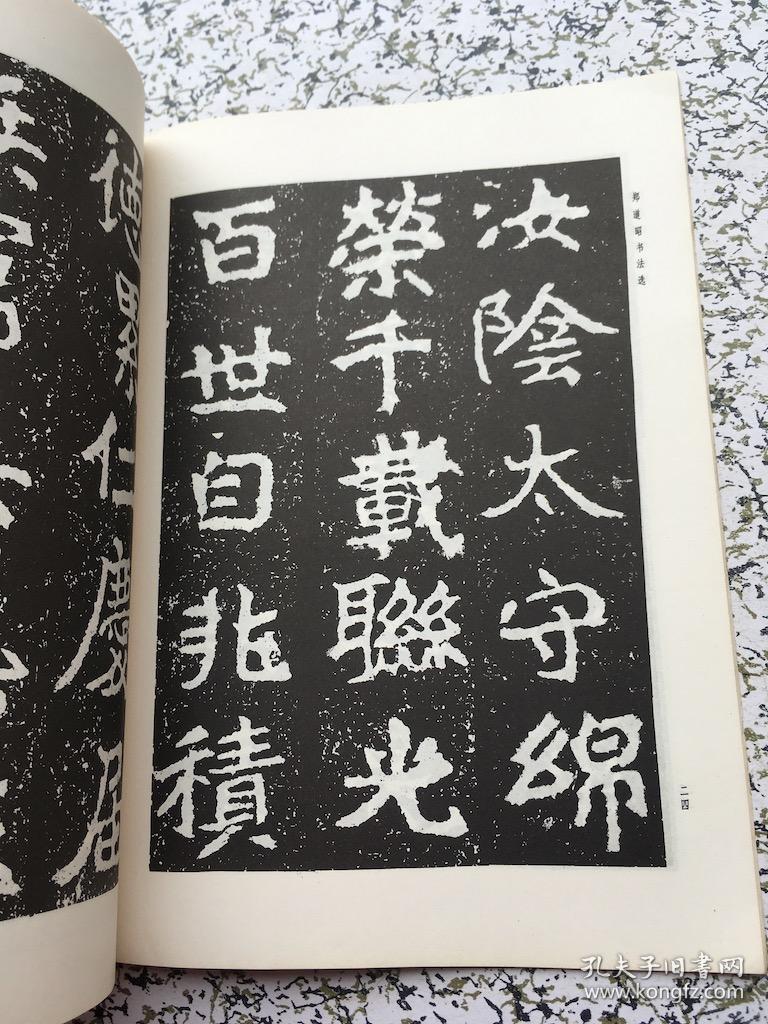 郑道昭书法选
汝陰太守綿
榮千載聯光
百世自非積
二四
德累仁慶屆
孔夫子旧書网
www.kongfz.com